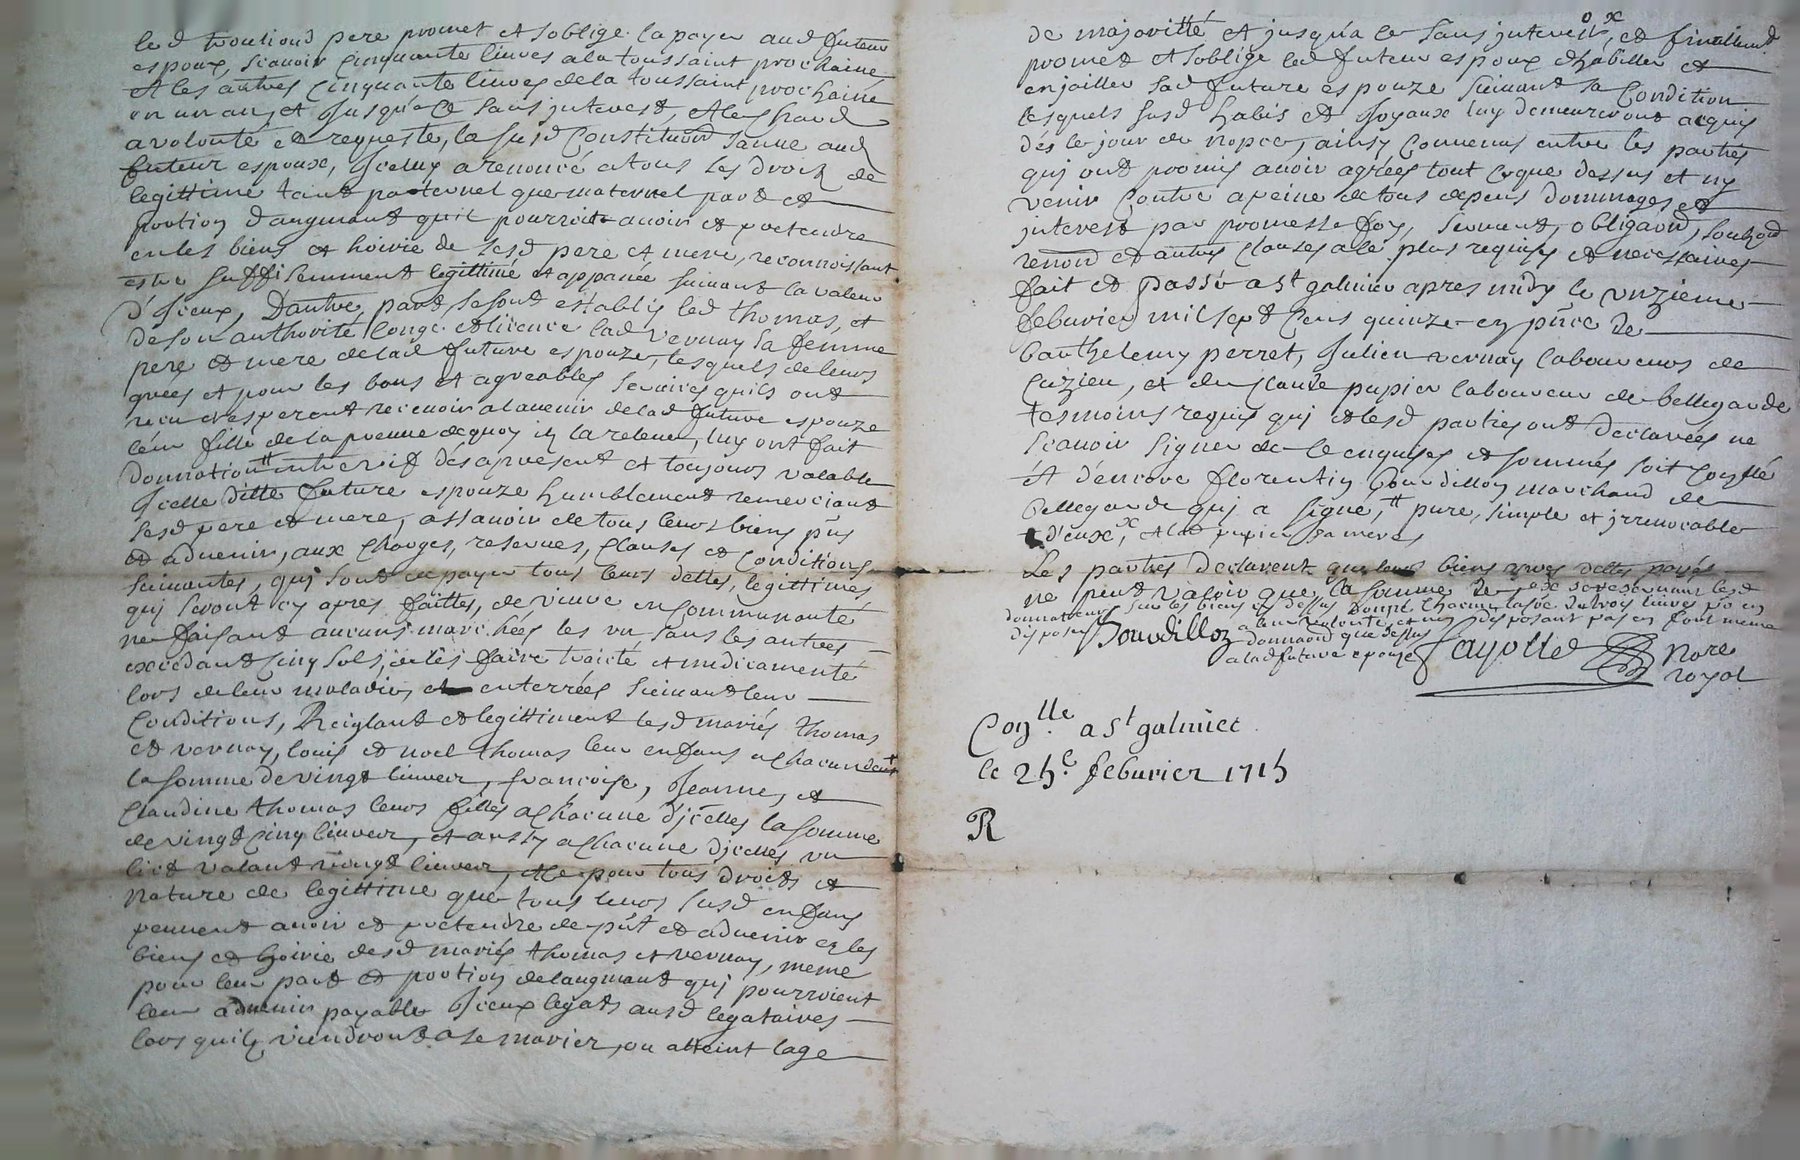 led trouliond pere promet et soblige la payer aud futeur
espoux, scauoir cinquante liures a la toussaint prochaine
et les autres cinquante liures de la toussaint prochaine
en un an, et jusqu'a ce sans jnterest, et les
a volonté et requeste, le susd Constituond aud
futeur espoux, jceluy a renoncé a tous les droix de
legittime tant paternel que maternel part et
portion d'augmant quil pourroit auoir et pretendre
en les biens et hoirie de sesd pere et mere, reconnoissant
estre suffisemment legittimé et appanée suiuant la valeur
d'jceux, D'autre part se sont establis led thomas, et
de son authorité Congé et licence lad vernay sa femme
pere et mere de lad future espouze, lesquels de leurs
grées et pour les bons et agreables seruices quils ont
receu et esperent receuoir a lauenir de lad future espouze
leur fille de la preuue de quoy ils la releue, luy ont fait
donnation tt entre vif des apresent et toujours valable
jcelle ditte future espouze humblement remerciant
sesd pere et mere, assauoir de tous leurs biens pñs
et aduenir, aux charges, reserues, clauses et conditions
suiuantes, quj sont de payer tous leurs dettes, legittimes
quj seront cy apres faittes, de viure en communauté
ne faisant aucuns marchées les vn sans les autres
excedant cinq sols, de les faire traicté et medicamenté
lors de leur maladies et enterrées suiuant leur
Conditions, Reiglant et legittiment lesd mariés thomas
et vernay, louis et noel thomas leur enfans a chacun deux
la somme de vingt liuures, francoise, Jeanne, et
Claudine thomas leurs filles a chacune d'jcelles la somme
de vingt cinq liuures, et aussy a chacune djcelles vn
lict valant vingt liuures, et ce pour tous droits et
nature de legittime que tous leurs susd enfans
peuuent auoir et pretendre de pñt et aduenir ez les
biens et hoirie desd mariés thomas et vernay, meme
pour leur part et portion de laugmant quj pourroient
leur aduenir payable jceux legats ausd legataires
lors quils viendront a se marier, ou atteint lage
de majoritté et jusqu'a ce sans jnterest, et finallemt
promet et soblige led futeur espoux d'habiller et
enjailler sad future espouze suiuant sa Condition
lesquels susd habis et joyaux luy demeureront acquis
dés le jour de nopce, ainsy conuenus entre les parties
quj ont promis auoir agrées tout ce que dessus et ny
venir Contre a peine de tous depens dommages et
jnterest par promesse foy, serment, obligaond, soubzod
renond et autres clauses a ce plus requises et necessaires
fait et passé a St galmier apres midy le vnzieme
feburier mil sept cens quinze en pñce de
barthelemy perret, Julien vernay laboureurs de
Cuzieu, et de Claude pupier laboureur de bellegarde
tesmoins requis quj et lesd parties ont declarées ne
scauoir signer de ce enquises et sommés soit conllé
et d'encore florentin Bourdillon marchand de
bellegarde quj a signé, tt pure, simple et jrreuocable
x d'eux, et led pupier
Les parties declarent que leurs biens vnes dettes payés
ne peut valoir que la somme de
donnateurs sur les biens cy dessus donné chacun la soe de trois liures po en
disposer a leur volonté, et ny disposant pas en font meme
donnaond que dessus
a lad future epouze
Bourdillon
fayolle
Nore
royal
Conlle. a St galmier
le 25e. feburier 1715
R